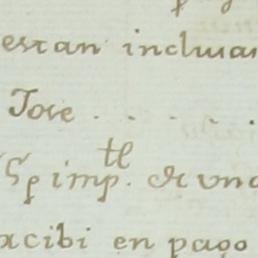 estan incluia
Jose . . . . .
imp.tl de una
recibi en pago